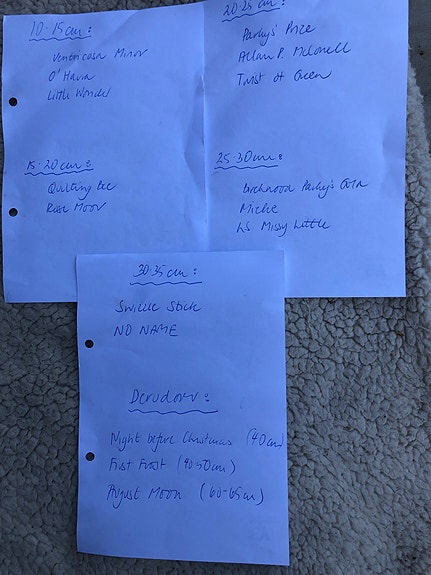 10-15cm:
Ventricosa Minor
O'Hara
Little Wonder
15-20cm:
Quilting Bee
Rose Moor
20-25cm:
Parky's Prize
Allan P. McConell
Twist of Green
25-30cm:
Birchwood Parky's Gold
Mickie
LS Missy Little
30-35cm:
Swizzle Stick
NO NAME
Night before Christmas (40cm)
First Frost (40-50cm)
August Moon (60-65cm)